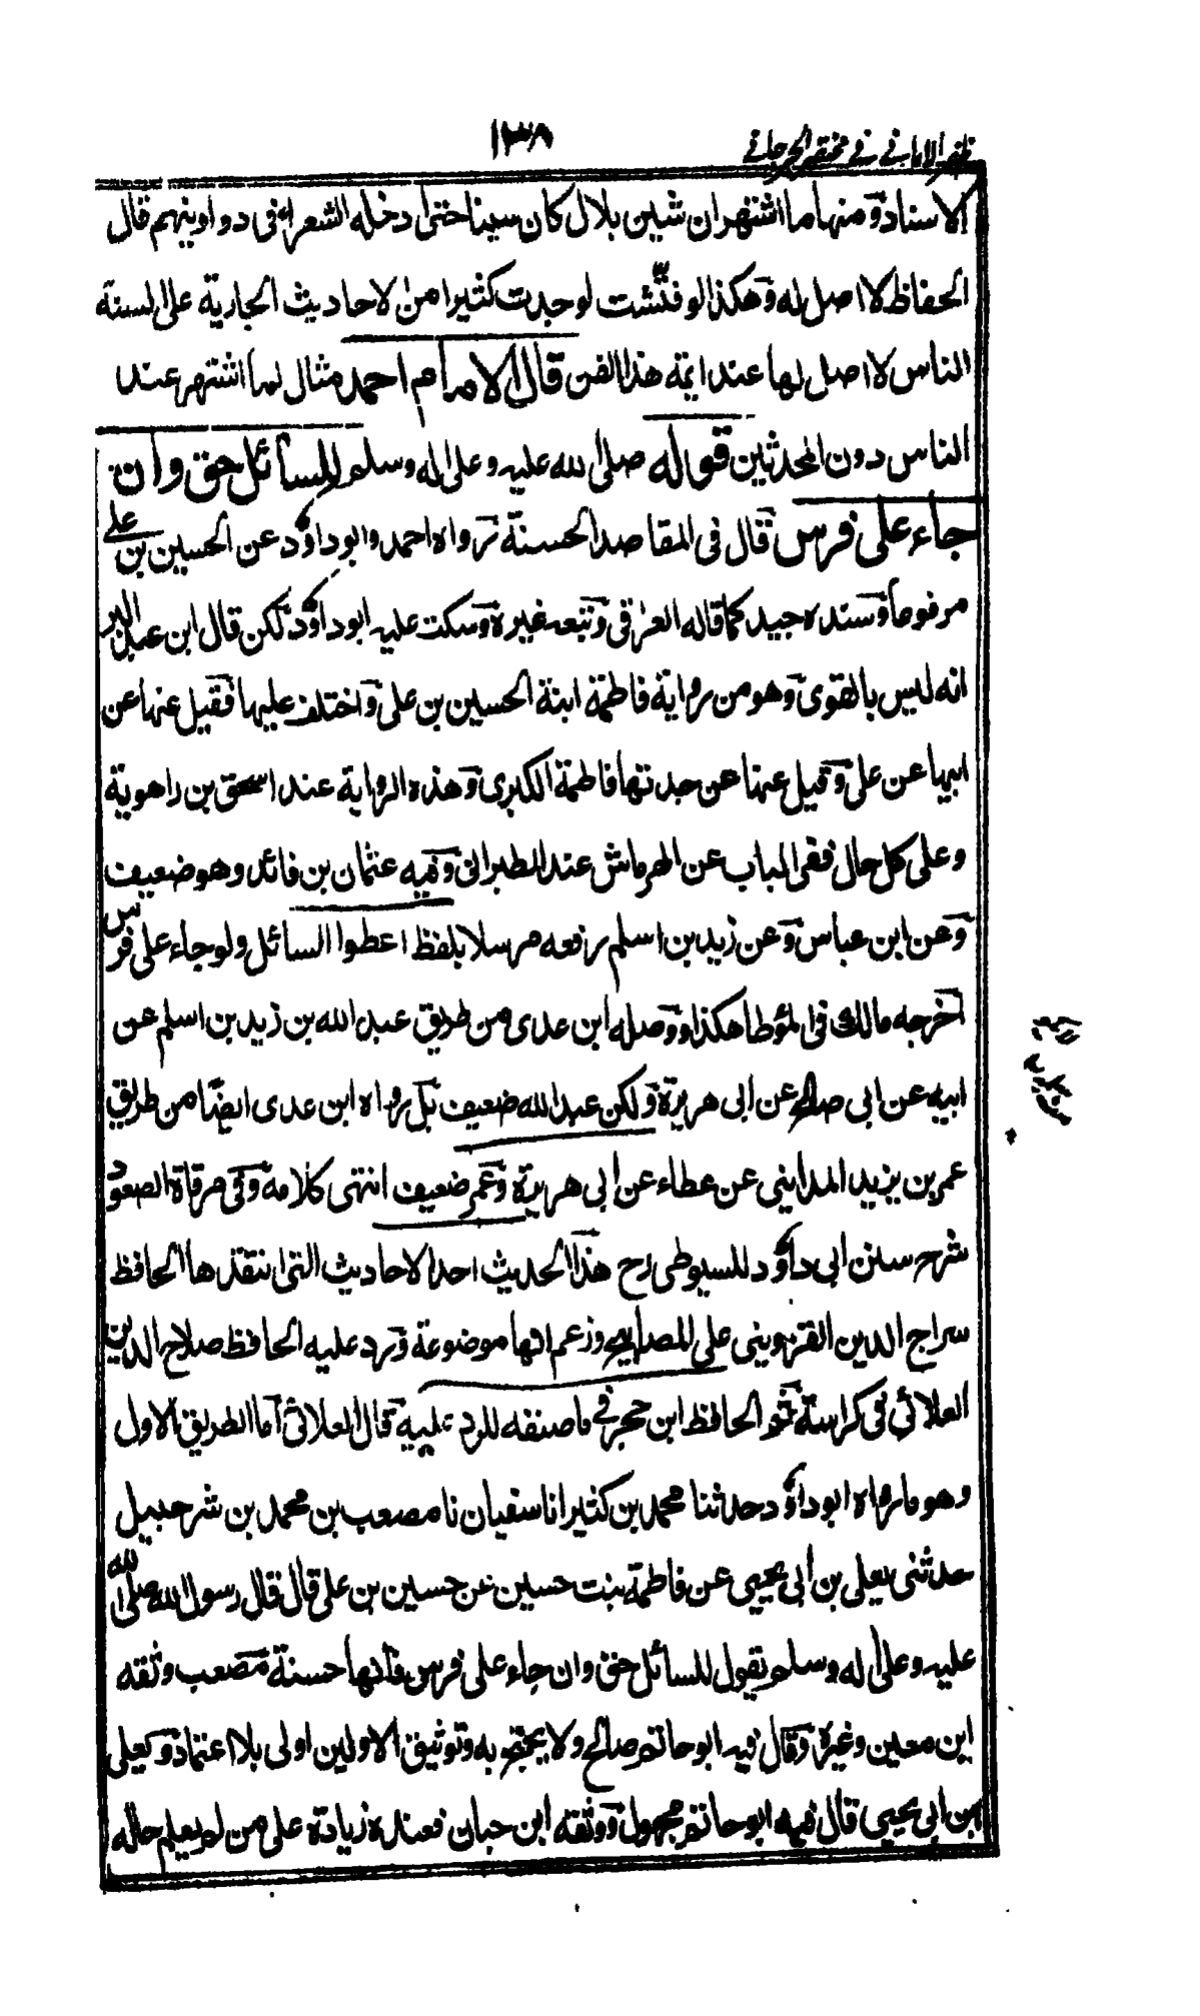 ١٣٨
ظفر الاماني في مختصر الجرجاني
الاسناد ومنها ما اشتهران شين بلال كان سينا حتى ادخله الشعراء في دواوينهم قال
الحفاظ لا اصل له وهكذا لو فتّشت لوجدت كثيرا من الاحاديث الجارية على السنة
الناس لا اصل لها عند ائمة هذا الفن قال الامام احمد مثال لما اشتهر عند
الناس دون المحدثين قوله صلى الله عليه وعلى اله وسلم للسائل حق وان
جاء على فرس قال في المقاصد الحسنة رواه احمد وابو داؤد عن الحسين بن علي
مرفوعا وسنده جيد كما قاله العراقي وتبعه غيره وسكت عليه ابو داؤد لكن قال ابن عبد البر
انه ليس بالقوى وهو من رواية فاطمة ابنة الحسين بن على واختلف عليها فقيل عنها عن
ابيها عن على وقيل عنها عن جدتها فاطمة الكبرى وهذه الرواية عند اسحق بن راهوية
وعلى كل حال ففى الباب عن الهرماش عند الطبرانى وفيه عثمان بن فائد وهو ضعيف
وعن ابن عباس وعن زيد بن اسلم رفعه مرسلا بلفظ اعطوا السائل ولو جاء على فرس
اخرجه مالك فى المؤطا هكذا ووصله ابن عدى من طريق عبد الله بن زيد بن اسلم عن
ابيه عن ابى صالح عن ابى هريرة ولكن عبد الله ضعيف بل رواه ابن عدى ايضا من طريق
عمر بن يزيد المدايني عن عطاء عن ابى هريرة وعمر ضعيف انتهى كلامه وفى مرقاة الصعود
شرح سنن ابى داؤد للسيوطى رح هذا الحديث احد الاحاديث التى انتقدها الحافظ
سراج الدين القزوينى على المصابيح وزعم انها موضوعة ورد عليه الحافظ صلاح الدين
العلائى فى كراسة ثم الحافظ ابن حجر فى ما صنفه للرد عليه قال العلائى اما الطريق الاول
وهو ما رواه ابو داؤد حدثنا محمد بن كثير انا سفيان نا مصعب بن محمد بن شرحبيل
حدثنى يعلى بن ابى يحيى عن فاطمة بنت حسين عن حسين بن على قال قال رسول الله صلى الله
عليه وعلى اله وسلم يقول للسائل حق وان جاء على فرس فانها حسنة مصعب وثقه
ابن معين وغيره وقال فيه ابو حاتم صالح ولا يحتج به وتوثيق الاولين اولى بلا اعتماد ويعلى
بن ابى يحيى قال فيه ابو حاتم مجهول ووثقه ابن حبان فعنده زيادة على من لم يعلم حاله